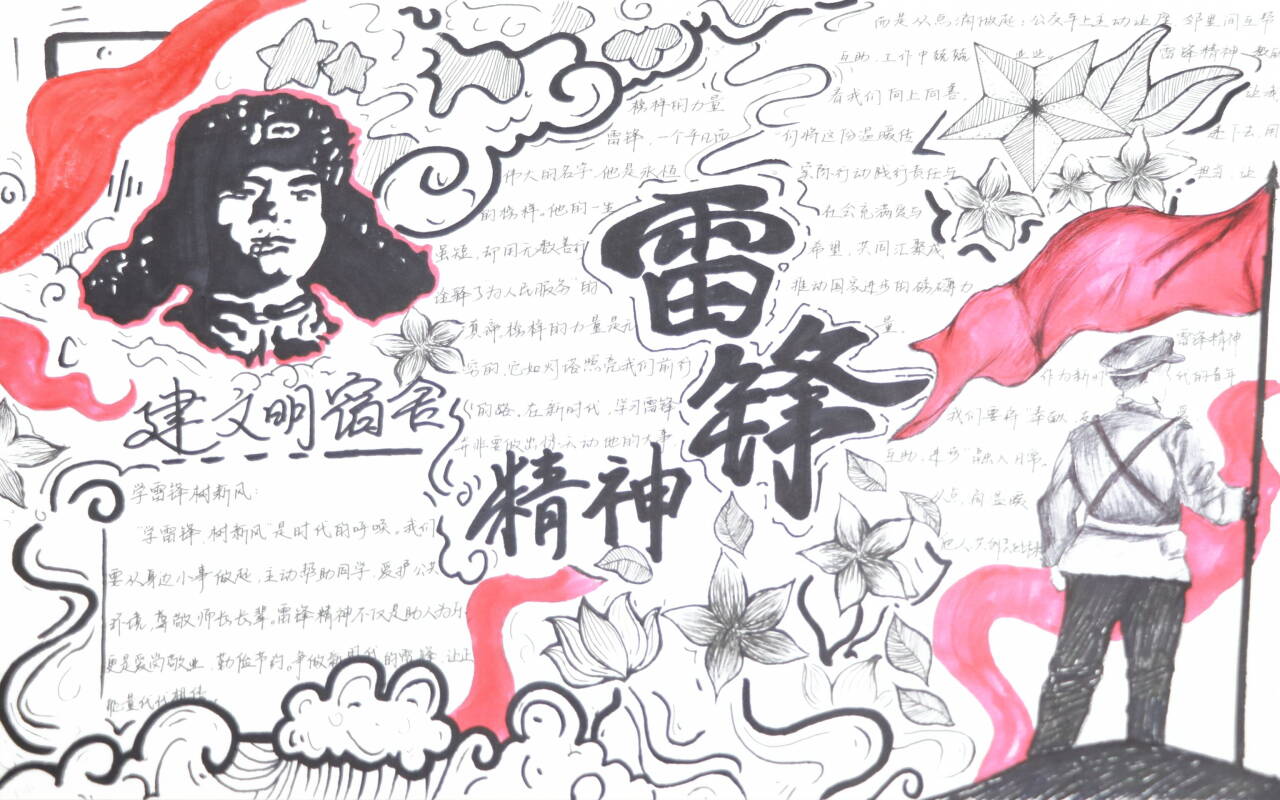 榜样的力量
雷锋，一个平凡而
伟大的名字，他是永恒
的榜样。他的一生
虽短，却用无数善行
诠释了为人民服务的
真谛。榜样的力量是无
穷的，它如灯塔照亮我们前行
的路。在新时代，学习雷锋
并非要做出惊天动地的大事，
而是从点滴做起：公交车上主动让座 邻里间互帮
互助、工作中兢兢 业业。 雷锋精神
着我们向上向善。 让我
们将这份温暖传 递下去，用
实际行动践行责任与 担当，让
社会充满爱与
希望，共同汇聚成
推动国家进步的磅礴力
量。
雷锋
精神
建文明宿舍
学雷锋 树新风：
“学雷锋、树新风”是时代的呼唤。我们
要从身边小事做起，主动帮助同学，爱护公共
环境，尊敬师长长辈。雷锋精神不仅是助人为乐
更是爱岗敬业、勤俭节约。争做新时代的雷锋，让
代代相传。
雷锋精神
作为新时代的青年
我们要将“奉献、
互助、进步”融入日常。